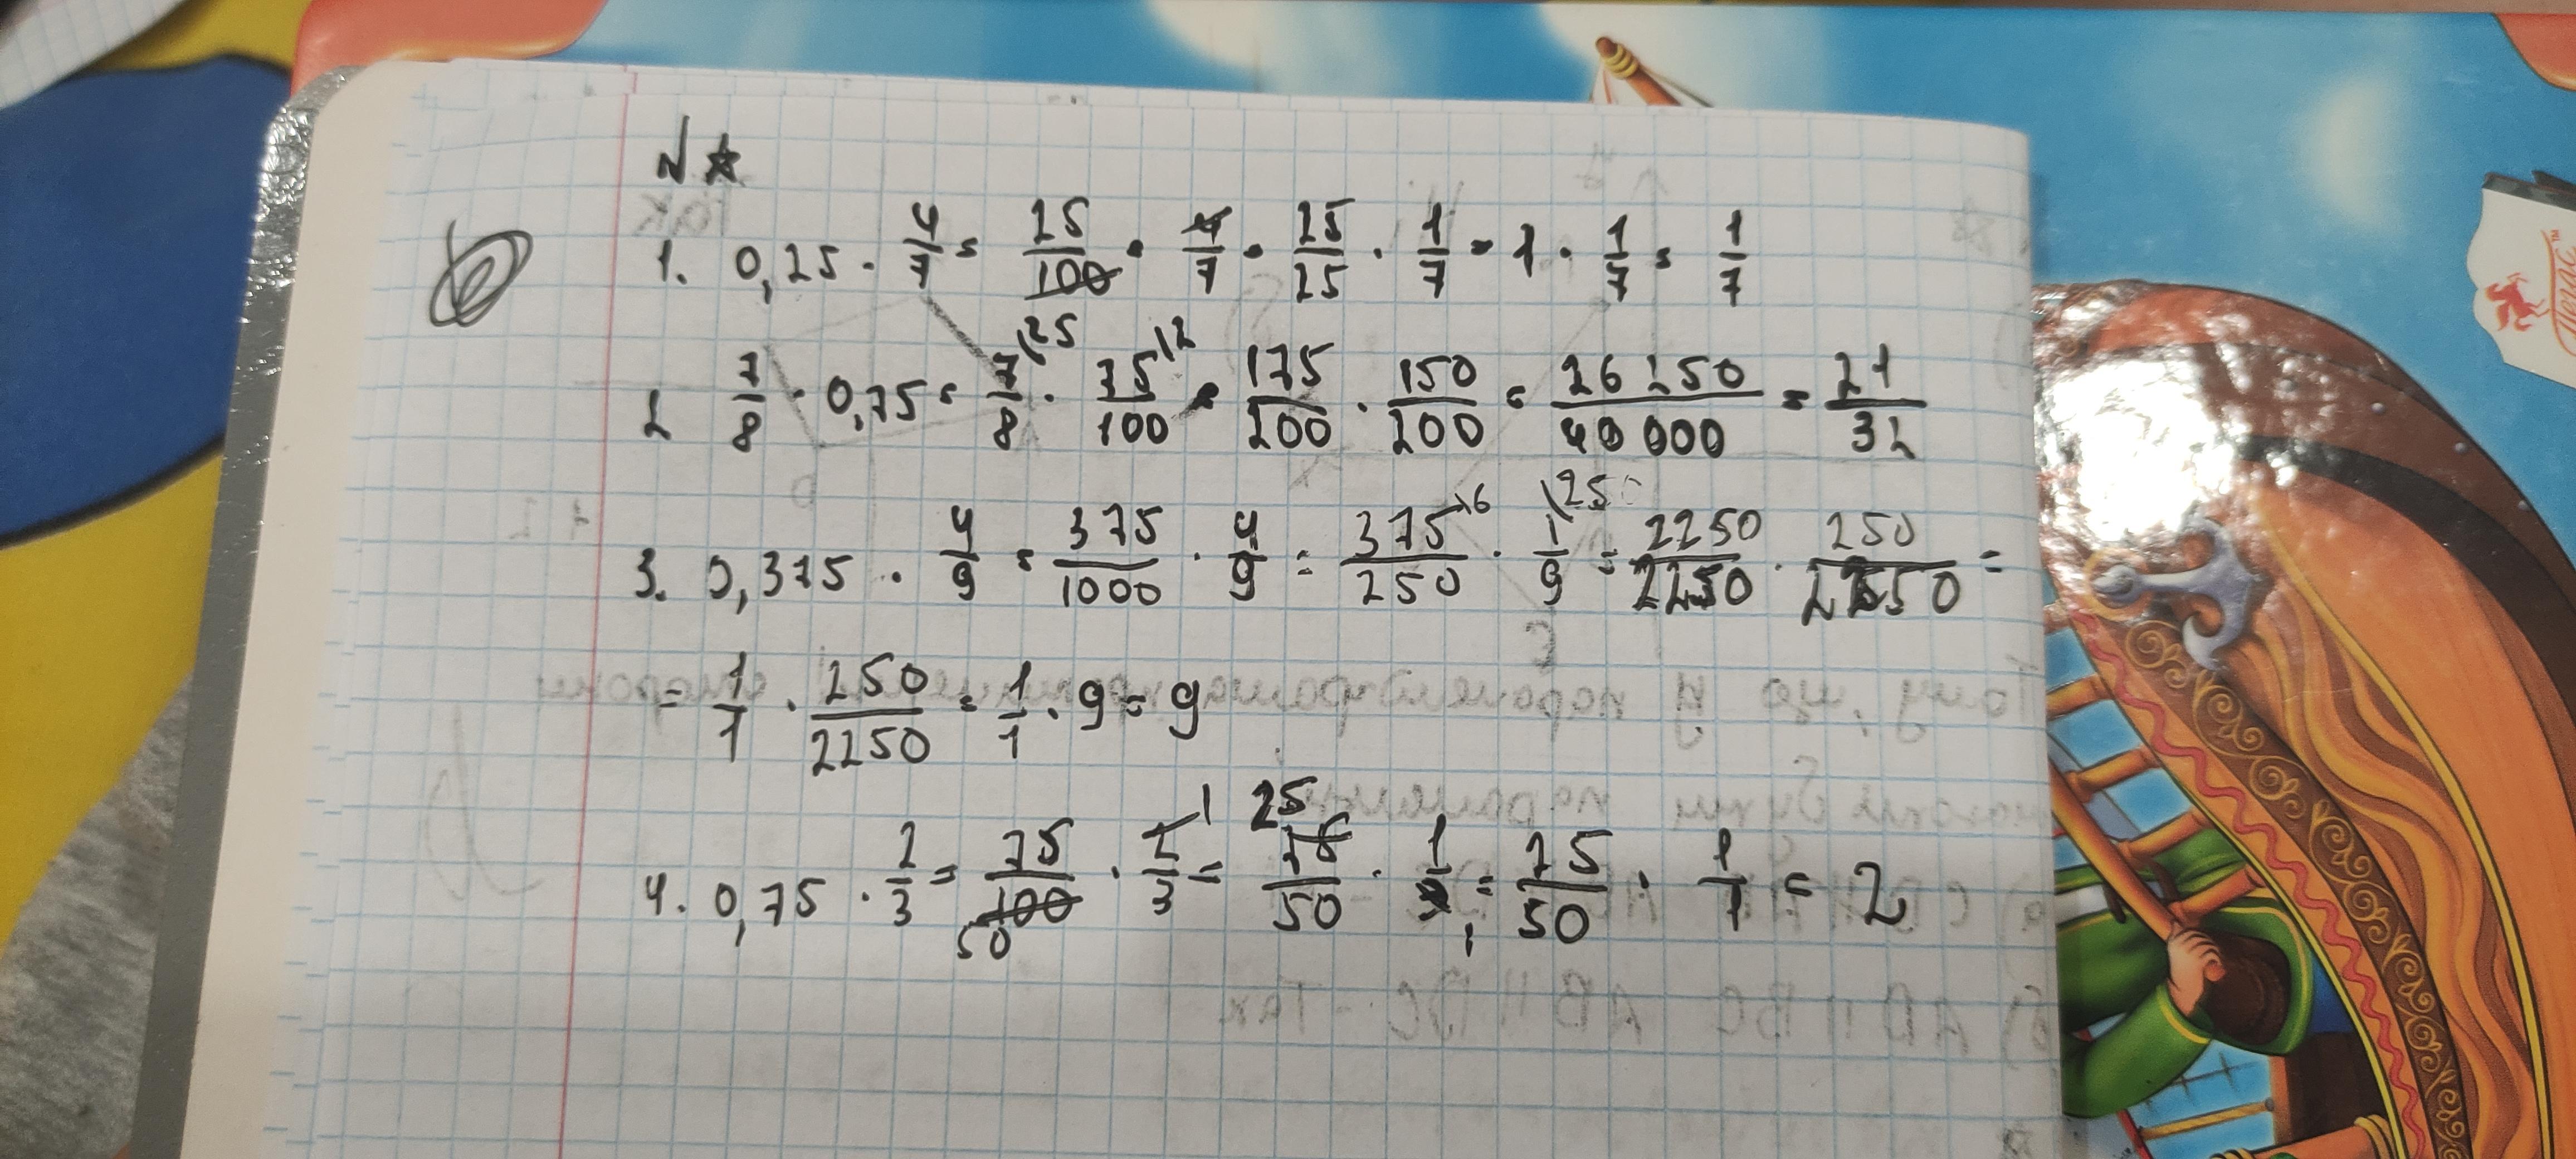 N ☆
1. 0,25 · 4/7 = 25/100 · 4/7 = 25/25 · 1/7 = 1 · 1/7 = 1/7
2 7/8 · 0,75 = 7/8 \25 · 75/100 \2 = 175/200 · 150/200 = 26250/40000 = 21/32
3. 0,375 · 4/9 = 375/1000 · 4/9 = 375/250 \6 · 1/9 \250 = 2250/2250 · 250/2250 =
= 1/1 · 250/2250 = 1/1 · 9 = 9
4. 0,75 · 2/3 = 75/100 50 · 2/3 1 = 25 75/50 · 1/3 1 = 25/50 · 1/1 = 2